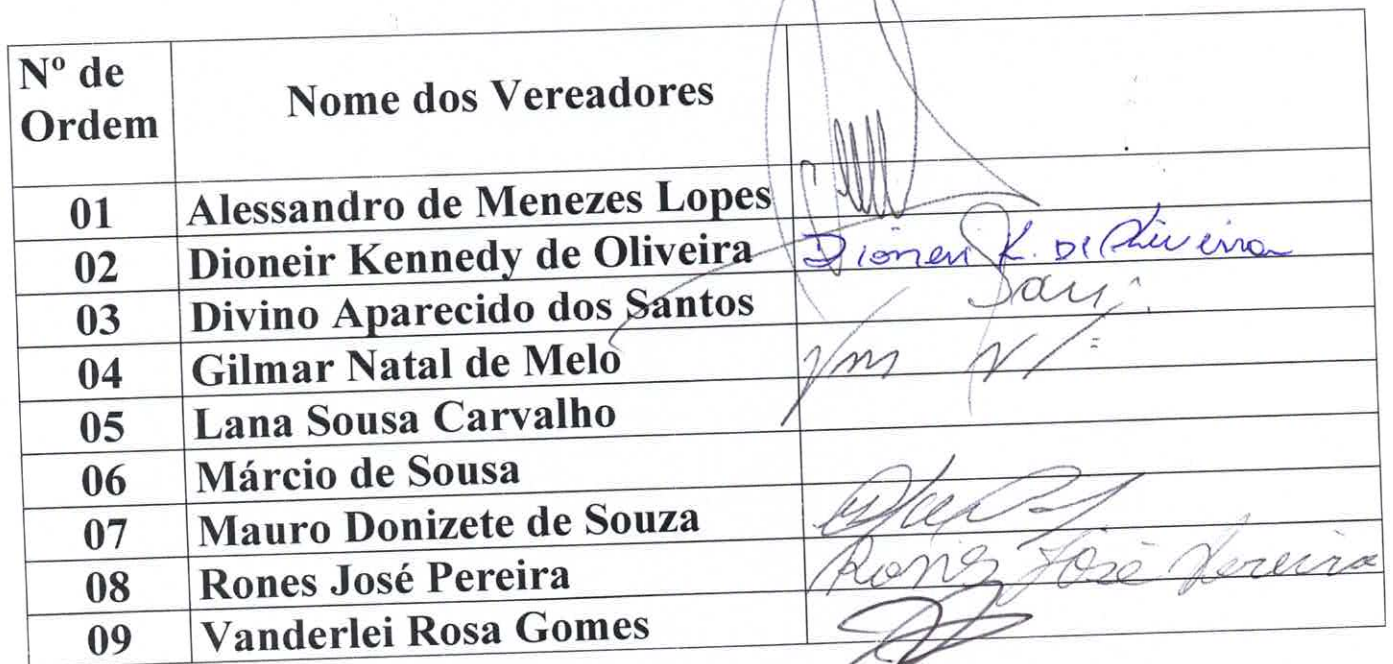 Nº de Ordem Nome dos Vereadores
01 Alessandro de Menezes Lopes
02 Dioneir Kennedy de Oliveira Dioneir K. de Oliveira
03 Divino Aparecido dos Santos
04 Gilmar Natal de Melo
05 Lana Sousa Carvalho
06 Márcio de Sousa
07 Mauro Donizete de Souza
08 Rones José Pereira Rones José Pereira
09 Vanderlei Rosa Gomes